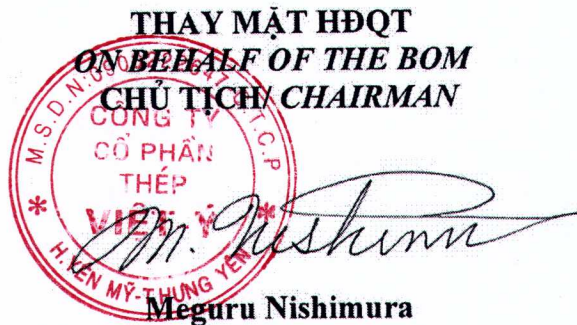 THAY MẶT HĐQT
ON BEHALF OF THE BOM
CHỦ TỊCH/ CHAIRMAN
CÔNG TY
CỔ PHẦN
THÉP
VIỆT Ý
H.YÊN MỸ-T.HƯNG YÊN
M. Nishimura
Meguru Nishimura